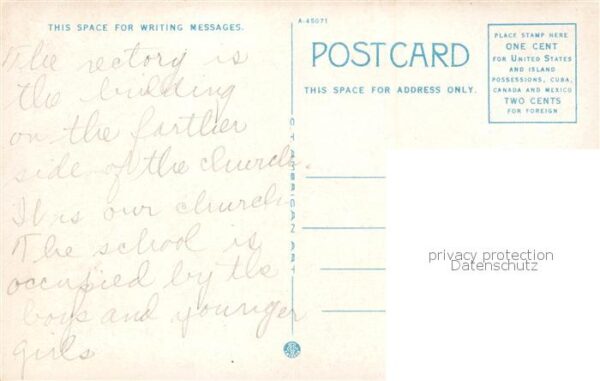 THIS SPACE FOR WRITING MESSAGES.
The rectory is
the building
on the farther
side of the church.
It is our church
The school is
occupied by the
boys and younger
girls
A-45071
POST CARD
THIS SPACE FOR ADDRESS ONLY.
PLACE STAMP HERE
ONE CENT
FOR UNITED STATES
AND ISLAND
POSSESSIONS, CUBA,
CANADA AND MEXICO
TWO CENTS
FOR FOREIGN
privacy protection
Datenschutz